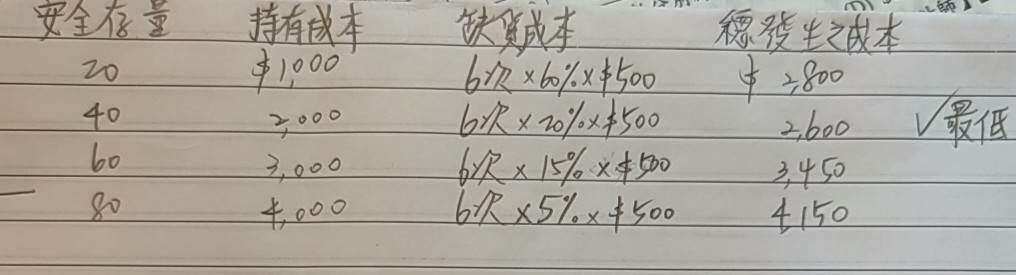 安全存量 持有成本 缺貨成本 總發生之成本
20 $1,000 6次×60%×$500 $2,800
40 2,000 6次×20%×$500 2,600 √最低
60 3,000 6次×15%×$500 3,450
80 4,000 6次×5%×$500 4,150